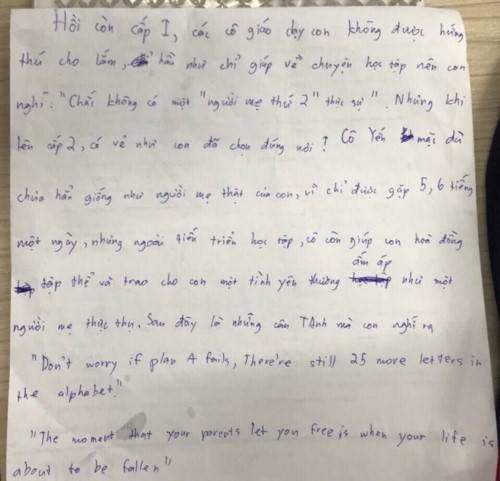 Hồi còn cấp I, các cô giáo dạy con không được hứng
thú cho lắm, hầu như chỉ giúp về chuyện học tập nên con
nghĩ: "Chắc không có một "người mẹ thứ 2" thực sự". Nhưng khi
lên cấp 2, có vẻ như con đã chọn đúng nơi! Cô Yến mặc dù
chưa hẳn giống như người mẹ thật của con, vì chỉ được gặp 5, 6 tiếng
một ngày, nhưng ngoài tiến triển học tập, cô còn giúp con hoà đồng
tập thể và trao cho con một tình yêu thương ấm áp như một
người mẹ thực thụ. Sau đây là những câu TAnh mà con nghĩ ra
"Don't worry if plan A fails, There're still 25 more letters in
the alphabet."
"The moment that your parents let you free is when your life is
about to be fallen"